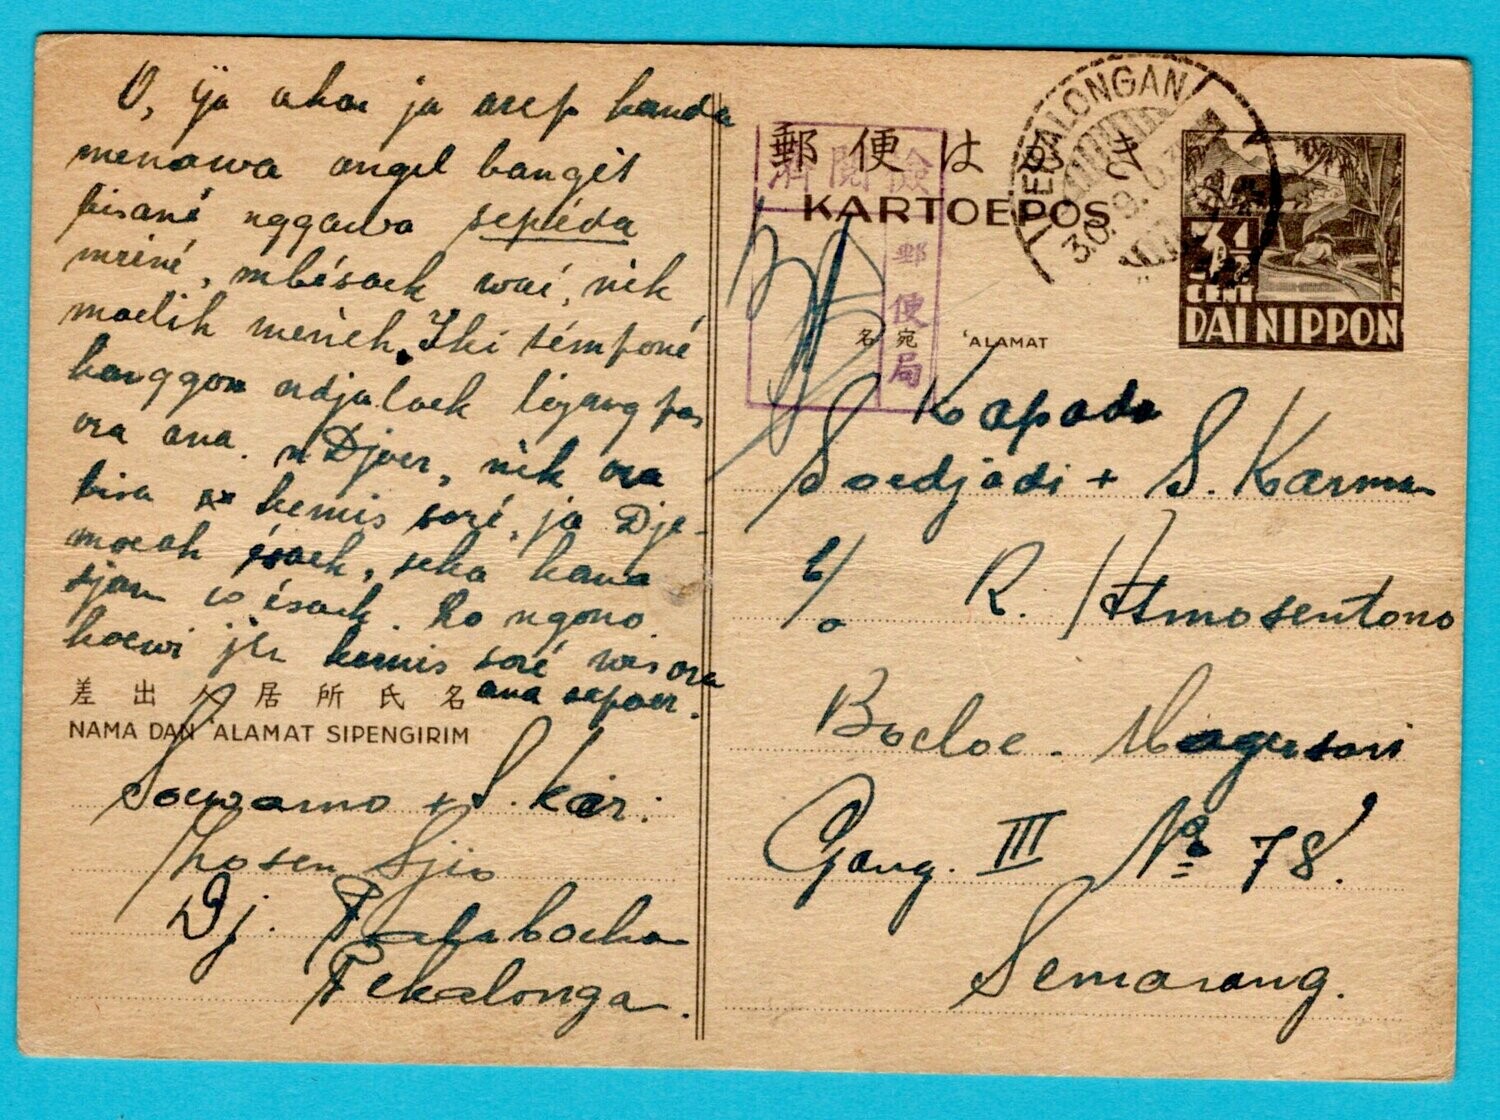 O, ija aku ja arep kanda
menawa angel banget
bisané nggawa sepéda
mriné, mbésoek waé, nèk
moelih menèh. Iki témponé
kanggon ndjaloek lijang pas
ora ana. nDjoer, nèk ora
bisa kemis soré, ja Dje-
moeah ésoek, seka kana
djam 10 ésoek. Lo ngono.
koewi jèn kemis soré wis ora
ana sepoer.
差出人居所氏名
NAMA DAN 'ALAMAT SIPENGIRIM
Soewarno + S. Kar:
Thosen Sjio
Dj.
Pekalongan.
郵便はがき
KARTOEPOS
檢閲濟
郵便局
PEGALONGAN
30.9.03
3½
CENT
DAI NIPPON
名宛
'ALAMAT
Kapada
Soedjadi + S. Karman
c/o R. Atmosentono
Boeloe - Magersari
Gang. III No 78.
Semarang.